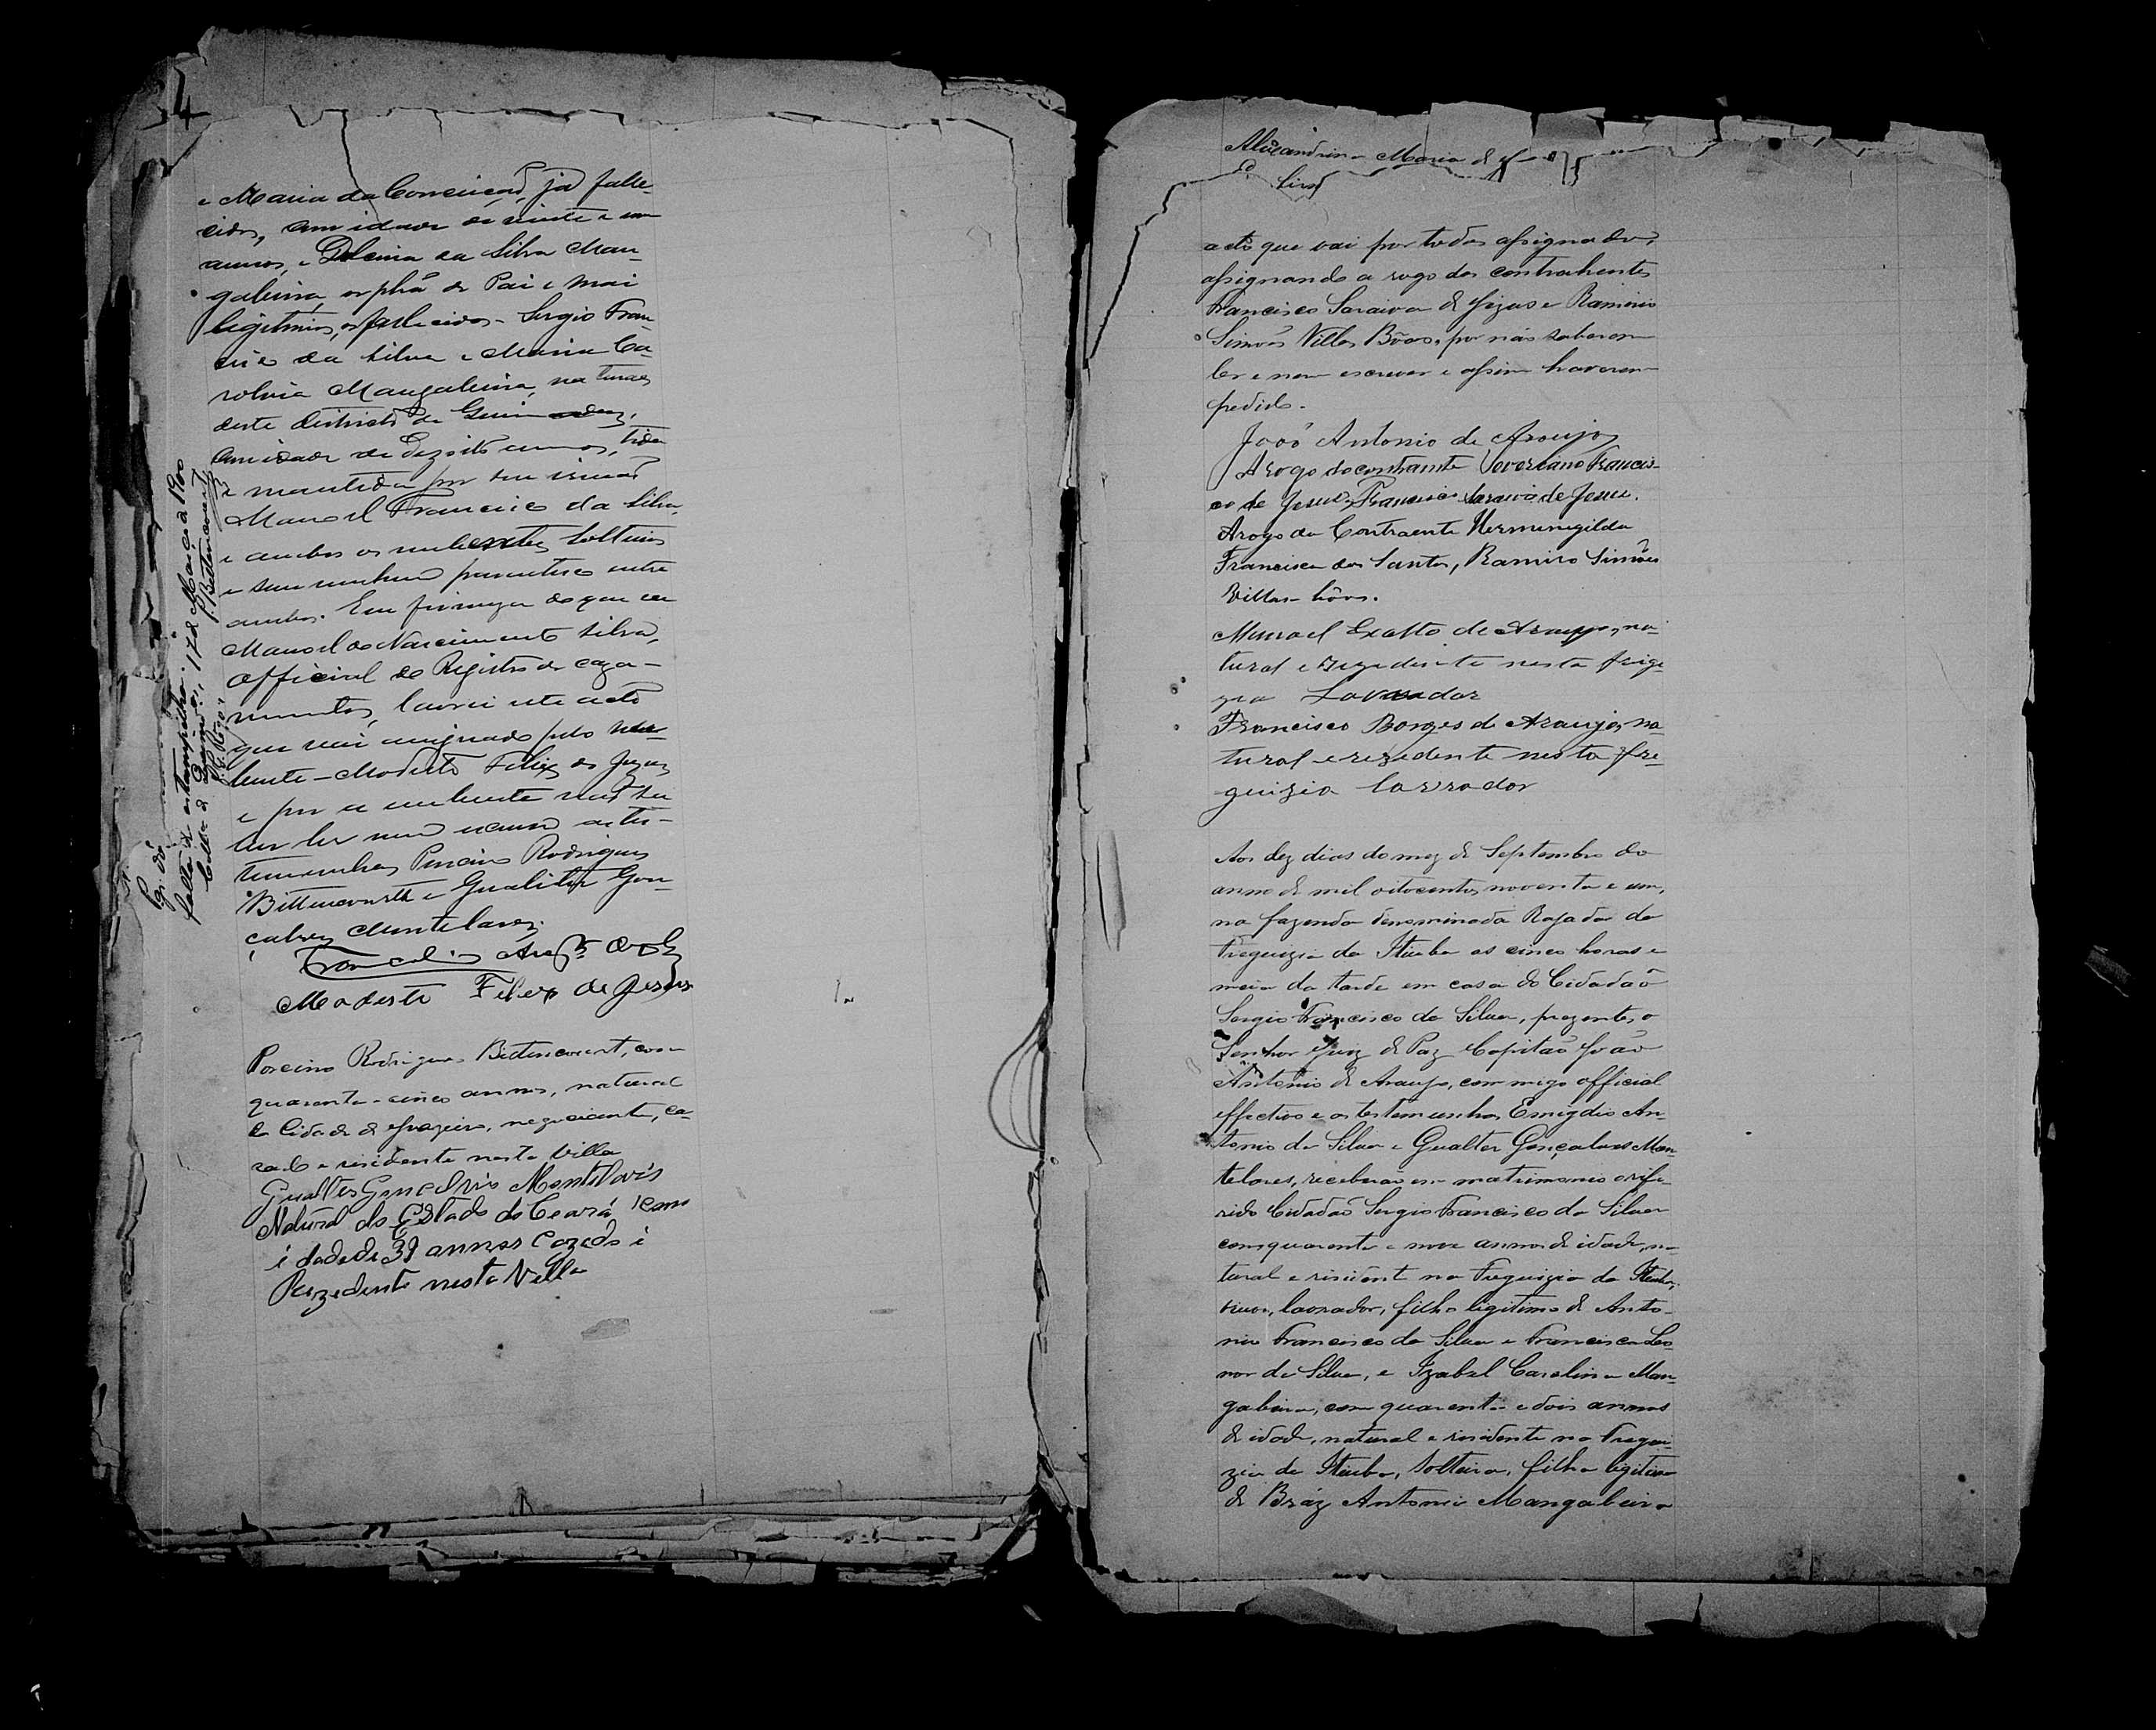 4
e Maria da Conceicaõ, já falle-
cidos, com idade de vinte e um
annos, e da Silva Man-
gabeira, orphã de Pai e Mai
legitimos, os fallecidos - Sergio Fran-
cisco da Silva e Maria Ca-
rolina Mangabeira, naturaes
deste districto de
com idade de Dezoito annos,
e mantida por seu irmaõ
Manoel Francisco da Silva,
e ambos os nubentes solteiros
e sem nenhum parentesco entre
ambos. Em firmeza do que eu
Manoel do Nascimento Silva,
Official do Registro de caza-
mentos, lavrei este acto
que vai assignado pelo nu-
bente - Modesto Felix de Jezus
e por a nubente naõ sa-
ber ler nem escrever as tes-
temunhas Porcino Rodrigues
Bittencourth e Gualter Gon-
çalves Montelares.
Modesto Felex de Jesus
Porcino Rodrigues Bittencourt, com
quarenta e cinco annos, natural
da Cidade de Joazeiro, negociante, ca-
zado e residente nesta Villa
Gualter Gonçalvis Montilaris
Natural do Estado do Ceará com
i dade de 39 annos Cazado i
Rezedente nesta Villa
falta de estampilha. 17 de Março de 1900
Bittencourt
Alexandrina Maria de
acto que vai por todos assignado,
assignando a rogo dos contrahentes
Francisco Saraiva de Jizus e Ramiro
Simões Villas Bôas, por não saberem
ler e nem escrever e assim haverem
pedido.
João Antonio de Araujo
A rogo do contraente Severiano Francis-
co de Jesus, Francisco Saraiva de Jesus.
Arogo da Contraente Hermenegilda
Francisca dos Santos, Ramiro Simões
Villas-bôas.
Manoel Exalto de Araujo, na-
tural e rezedente nesta freige
zia Lavrador
Francisco Borges de Araujo, na
tural e rezedente nesta fre-
guizia lavrador
Aos dez dias do mez de Septembro do
anno de mil oitocentos noventa e um,
na fazenda denominada Rajada da
Freguizia da Itiuba as cinco horas e
meia da tarde em casa do Cidadaõ
Sergio Francisco da Silva, prezente, o
Senhor Juiz de Paz Capitaõ João
Antonio de Araujo, com migo official
effectivo e as testemunhas Emigdio An-
tonio da Silva e Gualter Gonçalves Mon-
telares, receberaõ em matrimonio o rife-
rido Cidadaõ Sergio Francisco da Silva
com quarenta e nove annos de idade, na-
tural e risident na Freguizia da Itiuba,
viuvo, lavrador, filho legitimo de Anto-
nio Francisco da Silva e Francisca Leo-
nor da Silva, e Izabel Carolina Man-
gabeira, com quarenta e dois annos
de idade, natural e residente na Fregui-
zia da Itiuba, solteira, filha legitima
de Bráz Antonio Mangabeira